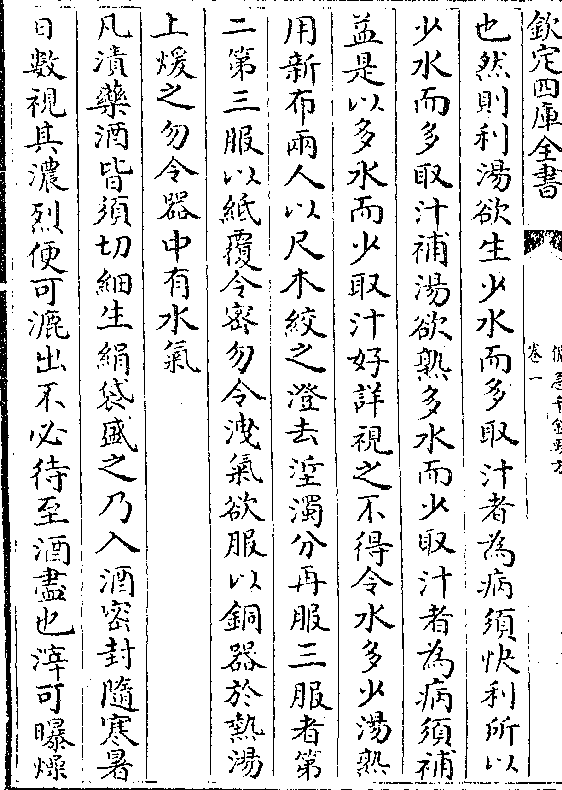 欽定四庫全書
備急千金要方
卷一
也然則利湯欲生少水而多取汁者為病須快利所以
少水而多取汁補湯欲熟多水而少取汁者為病須補
益是以多水而少取汁好詳視之不得令水多少湯熟
用新布兩人以尺木絞之澄去滓濁分再服三服者第
二第三服以紙覆令密勿令洩氣欲服以銅器於熱湯
上煖之勿令器中有水氣
凡漬藥酒皆須切細生絹袋盛之乃入酒密封隨寒暑
日數視其濃烈便可漉出不必待至酒盡也滓可曝燥